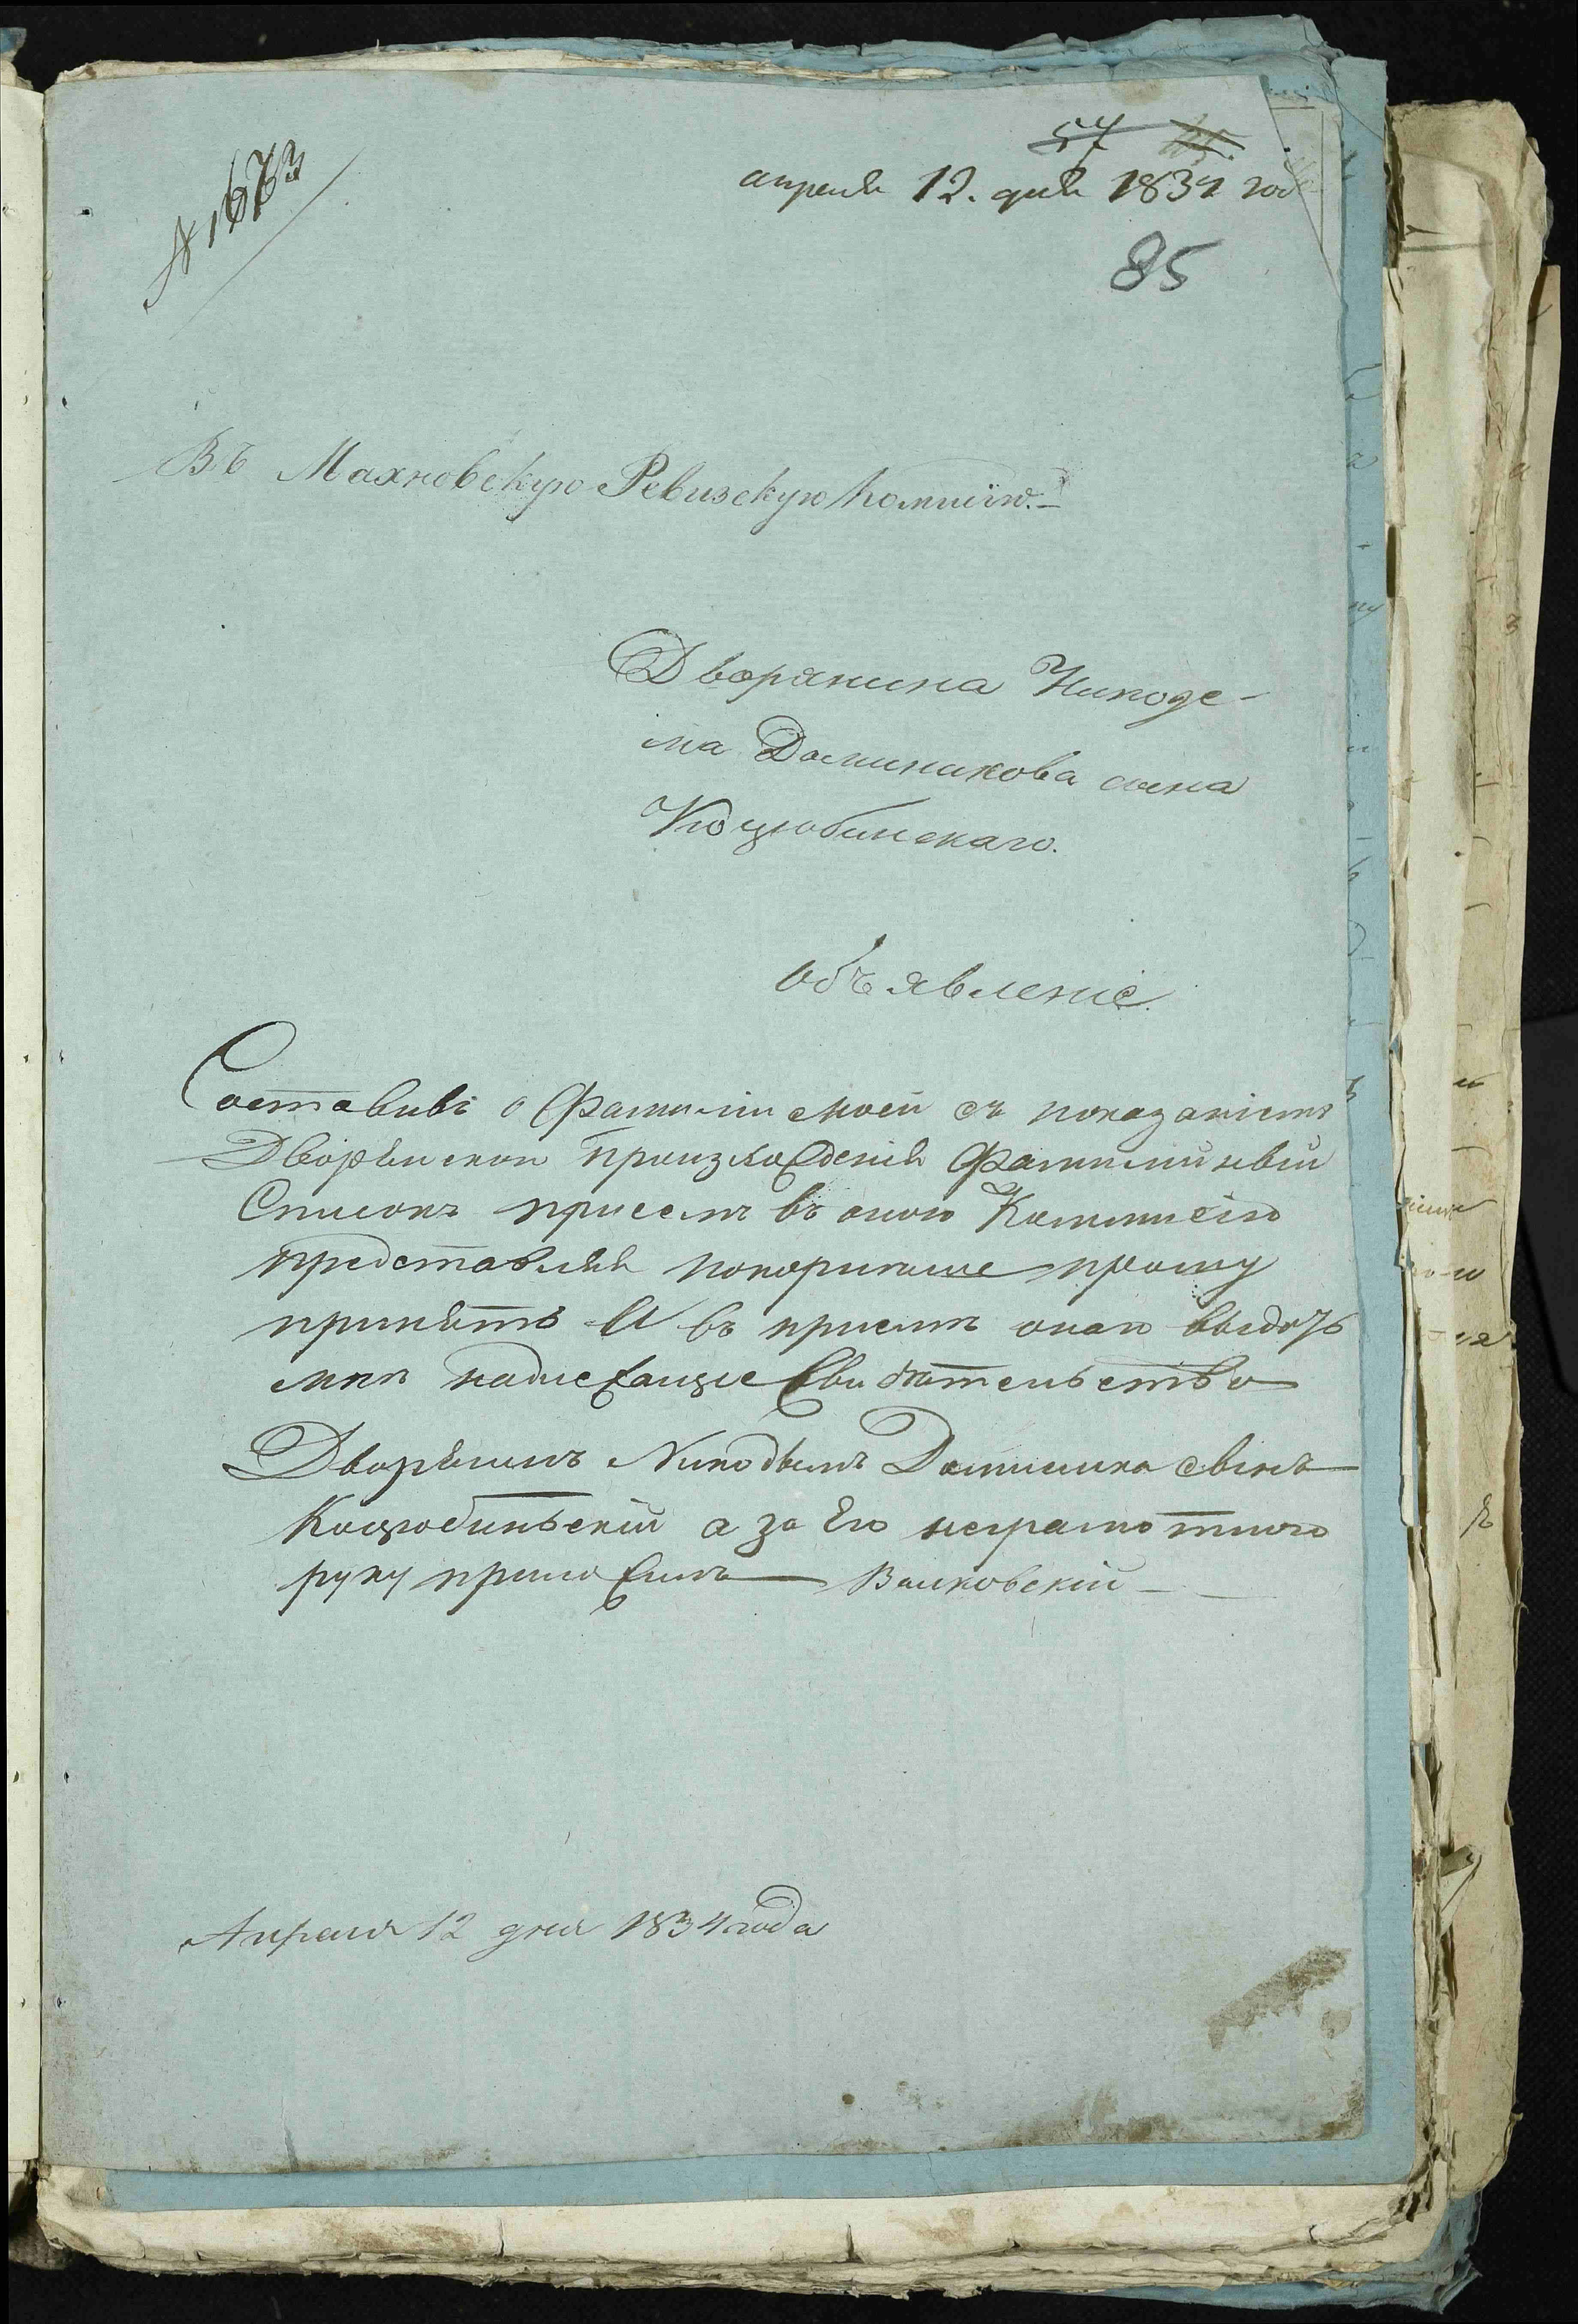 № 1673
57
апреля 12. дня 1834 года
85
Въ Махновскую Ревизскую Комиiю.-
Дворянина Никоде-
ма Доминикова сына
Коцюбинскаго.
объявленiе.
Составивъ о Фамилiи моей съ показанiемъ
Дворянскои произхожденiя Фамилiйный
Списокъ присемъ въ оною Коммисiю
представляя покорнише прошу
принять И въ приемѣ онаго выдать
мнѣ надлежащие Свидѣтельство
Дворянинъ Никодымъ Доминика сынъ
Коцюбиньскiй а за Его неграмотнаго
руку приложилъ Валковскiй
Апреля 12 дня 1834 года